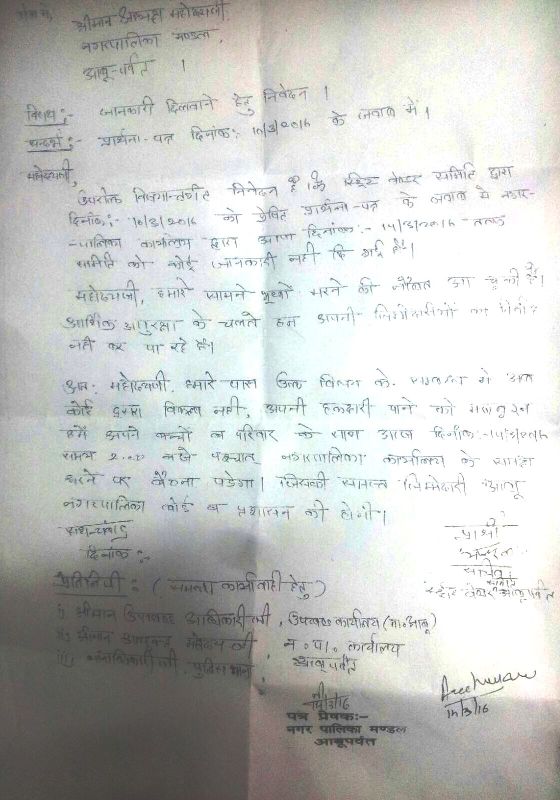 श्रीमान अध्यक्ष महोदयजी,
नगरपालिका मण्डल
आबू-पर्वत ।
विषय:- जानकारी दिलवाने हेतु निवेदन ।
सन्दर्भ:- प्रार्थना-पत्र दिनांक:- 10/3/2016 के जवाब में ।
महोदयजी,
उपरोक्त विषयान्तर्गत निवेदन है कि स्ट्रिट वेण्डर समिति द्वारा
दिनांक:- 10/3/2016 को प्रेषित प्रार्थना-पत्र के जवाब में नगर-
-पालिका कार्यालय द्वारा आज दिनांक:- 14/3/2016 तक
समिति को कोई जानकारी नहीं कि गई है।
महोदयजी, हमारे सामने भूखों मरने की नौबत आ चुकी है।
आर्थिक असुरक्षा के चलते हम अपनी जिम्मेदारीयों का
नहीं कर पा रहे है।
अत: महोदयजी, हमारे पास उक्त विषय के सम्बन्ध में अब
कोई दुसरा विकल्प नहीं, अपनी हकदारी पाने को
हमें अपने बच्चों व परिवार के साथ आज दिनांक:- 14/3/2016
समय 2.00 बजे पश्चात नगरपालिका कार्यालय के समक्ष
धरने पर बैठना पड़ेगा। जिसकी समस्त जिम्मेदारी आबू
नगरपालिका बोर्ड व प्रशासन की होगी।
धन्यवाद
दिनांक:-
प्रार्थी
आबूपर्वत
प्रतिलिपी:- (समस्त कार्यवाही हेतु)
i) श्रीमान उपखण्ड अधिकारी जी, उपखण्ड कार्यालय (मा.आबू)
ii) श्रीमान आयुक्त महोदय जी, न.पा. कार्यालय
iii) थानाधिकारी जी, पुलिस थाना, आबू पर्वत
14/3/16
14/3/16
पत्र प्रेषक:-
नगर पालिका मण्डल
आबूपर्वत